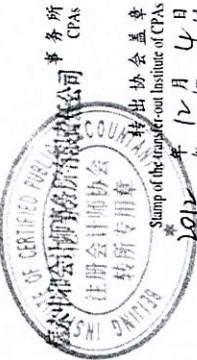 事务所
CPAs
BEIJING INSTITUTE OF CERTIFIED PUBLIC ACCOUNTANTS
注册会计师协会
转所专用章
转出协会盖章
Stamp of the transfer-out Institute of CPAs
2012 年 12 月 4 日